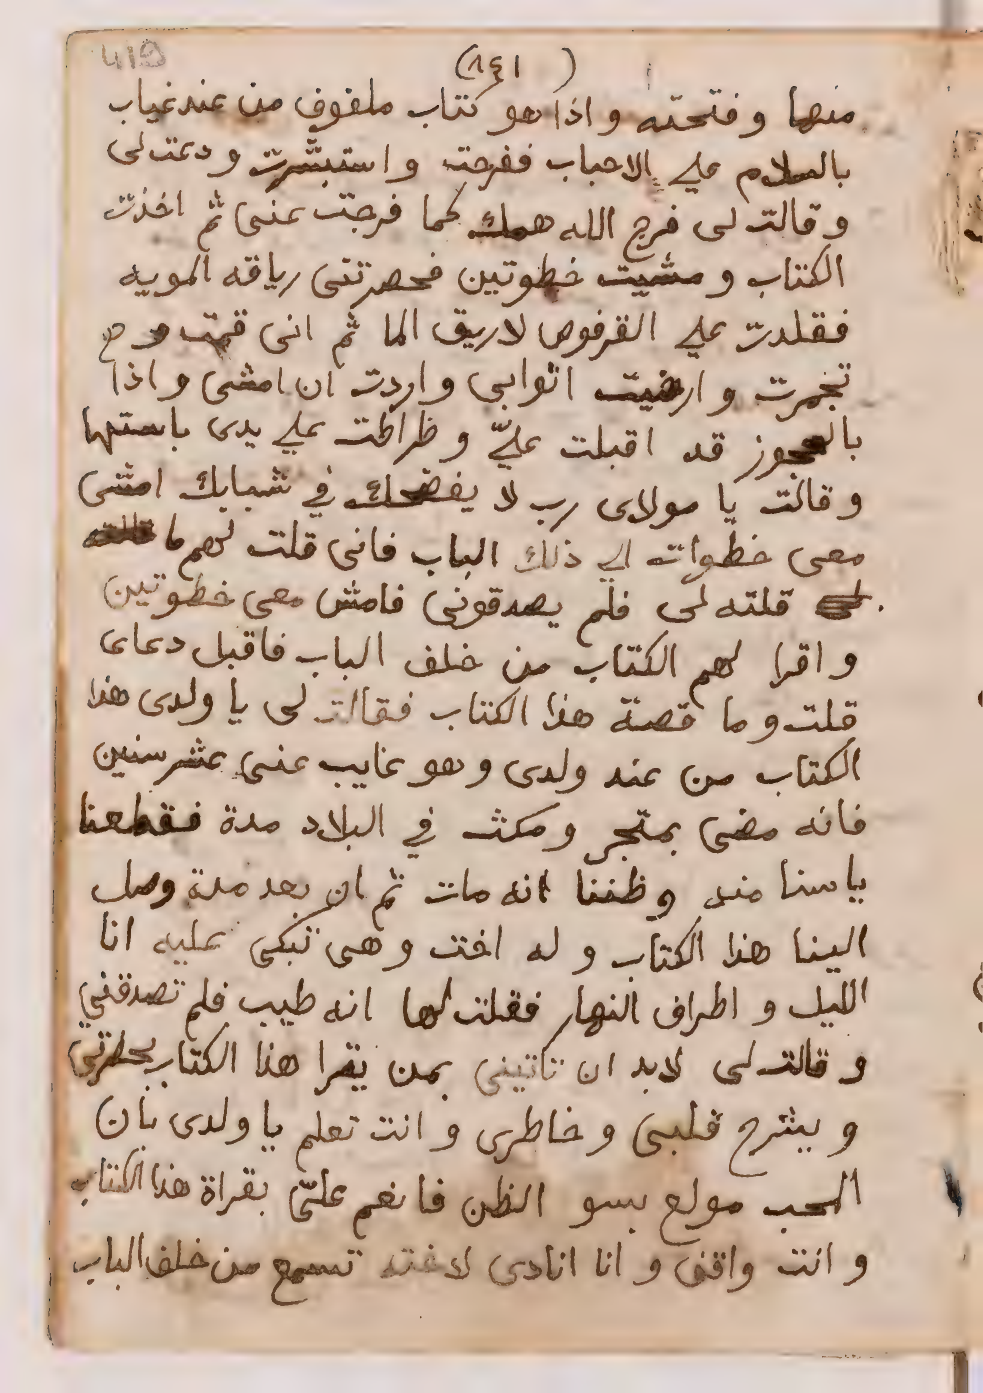 419
(٨٤١)
منها وفتحته واذا هو كتاب ملفوف من عند غياب
بالسلام علي الاحباب ففرحت واستبشرت ودعت لى
وقالت لى فرج الله همك كما فرجت عنى ثم اخذت
الكتاب ومشيت خطوتين فحصرتنى رياقه المويه
فقلدت علي القرفوص لاريق الما ثم انى قمت و
تجمرت وارخيت اثوابى واردت ان امشى واذا
بالعجوز قد اقبلت عليّ وطراطت علي يدى باستها
وقالت يا مولاى رب لا يفضحك في شبابك امشى
معى خطوات الي ذلك الباب فانى قلت لهم ما
قلته لى فلم يصدقونى فامش معى خطوتين
واقرا لهم الكتاب من خلف الباب فاقبل دعاى
قلت وما قصة هذا الكتاب فقالت لى يا ولدى هذا
الكتاب من عند ولدى وهو غايب عنى عشر سنين
فانه مضى بمتجر ومكث في البلاد مدة فقطعنا
ياسنا منه وظننا انه مات ثم ان بعد مدة وصل
الينا هذا الكتاب وله اخت وهى تبكى عليه انا
الليل واطراف النهار فقلت لها انه طيب فلم تصدقني
وقالت لى لابد ان تاتينى بمن يقرا هذا الكتاب بحضرتي
ويشرح قلبى وخاطرى وانت تعلم يا ولدى بان
المحب مولع بسو الظن فانعم علىّ بقراة هذا الكتاب
وانت واقف وانا انادى لاخته تسمع من خلف الباب